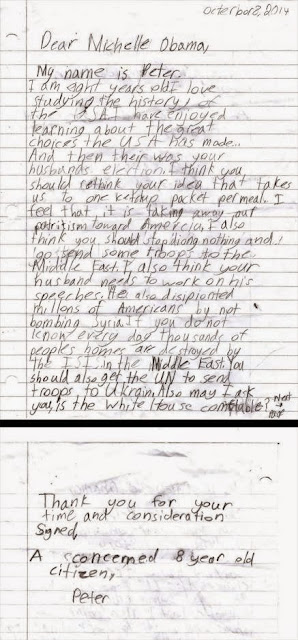 octerbor2,2014
Dear Michelle Obama,
My name is Peter.
I am eght years old I love
studying the history, of
the USA I have enjoyed
learning about the great
choices the USA has made...
And then their was your
husbands election. I think you
should rethink your idea that takes
us to one ketchup packet per meal. I
feel that, it is taking away out
patritism toward Amercia. I also
think you should stop diong nothing and
go send some troops to the
Middle East. I also think your
husband needs to work on his
speerhes. He also disipionted
millons of Americans by not
bombing Syria. If you do not
know every day thousands of
peoples homes are destoyed by
the ISI. in the Middle East. You
should also get the UN to send
troops to Ukrain. Also may I ask
you, is the White House comftable? Next
→
Thank you for your
time and consideration
Signed,
A concerned 8 year old
citizen,
Peter